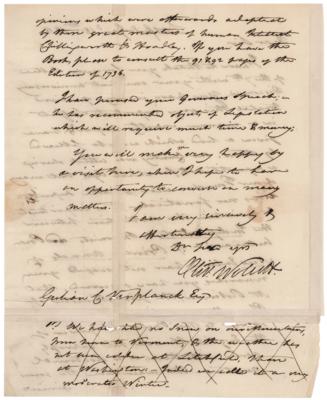 opinions which were afterwards adopted
by those great masters of human Intellect
Chillingworth & Hoadley, If you have the
Book please to consult the 91 & 92 pages of the
Edition of 1736.
I have perused your Governours Speech, &
he has recommended objects of Legislation
which will require much time & money;
You will make me very happy by
a visit here, when I hope to have
an opportunity to converse on many
matters.
I am very sincerely &
affectionately
Dr Sir yrs
Gulian C. Verplanck Esq
We have had no Snow on
from here to Vermont, & the weather has
not been colder at Litchfield, than
at Washington. Indeed we call it a very
moderate Winter.